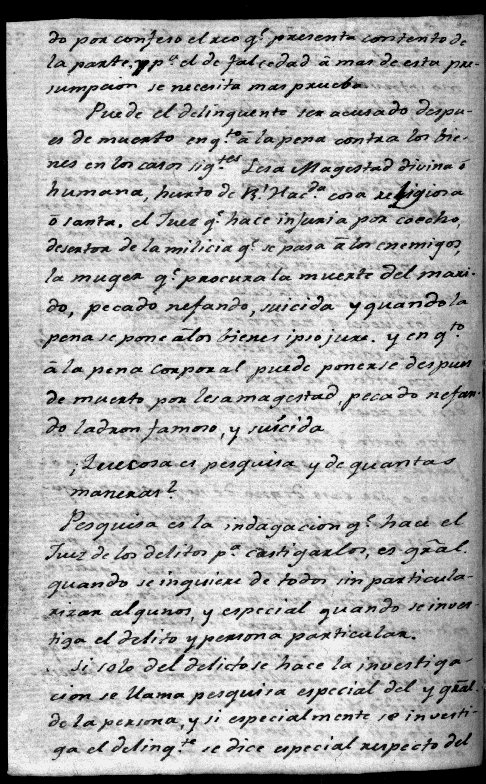 do por confeso el reo q.e presenta contento de
la parte, y p.a el de falcedad â mas de esta pre-
sumpcion se necesita mas prueba
Puede el delinquente ser acusado despu-
es de muerto en q.to a la pena contra los bie-
nes en los casos sig.tes Lesa Magestad divina ô
humana, hurto de R.l Hac.da cosa religiosa
ô santa. el Juez q.e hace injuria por coecho,
desertor de la milicia q.e se pasa â los enemigos,
la muger q.e procura la muerte del mari-
do, pecado nefando, suicida y quando la
pena se pone â los bienes ipso jure. y en q.to
â la pena corporal puede ponerse despues
de muerto por lesa magestad, pecado nefan-
do ladron famoso, y suicida
¿Que cosa es pesquisa y de quantas
maneras?
Pesquisa es la indagacion q.e hace el
Juez de los delitos p.a castigarlos, es gral.
quando se inquiere de todos sin particula-
rizar algunos, y especial quando se inves-
tiga el delito y persona particular.
Si solo del delicto se hace la investiga-
cion se llama pesquisa especial del y gral.
de la persona, y si especialmente se investi-
ga el delinq.te se dice especial respecto del